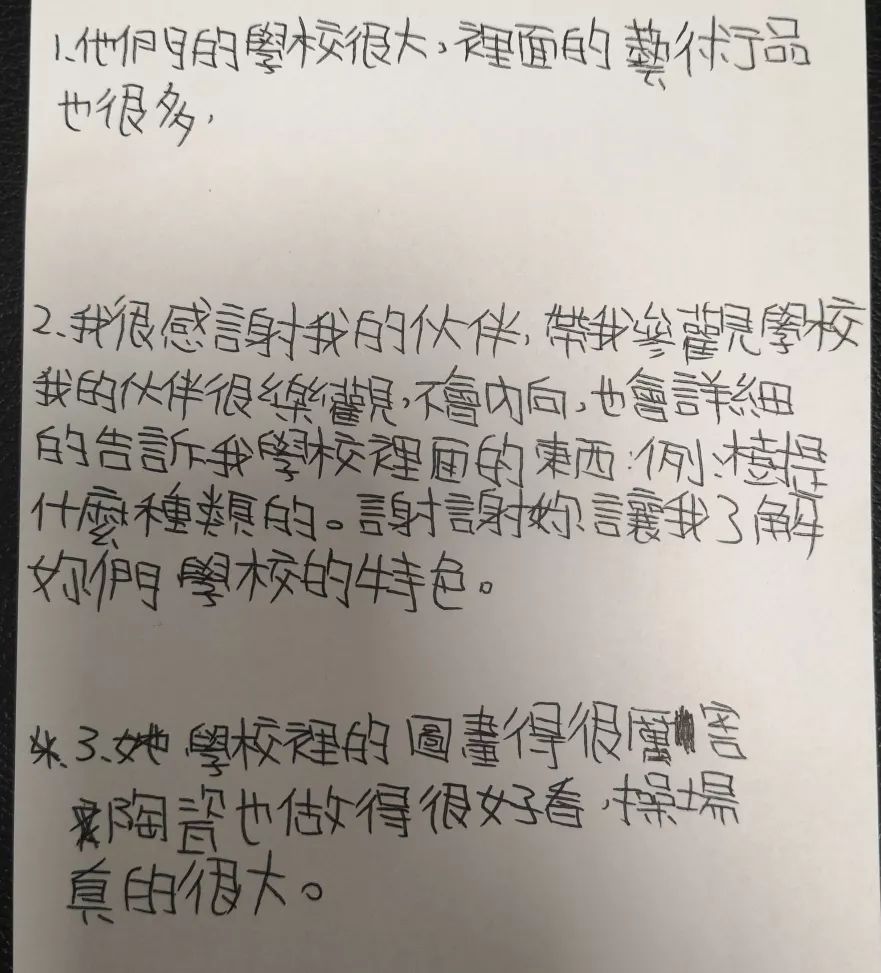 1.他們的學校很大,裡面的藝術品
也很多,
2.我很感謝我的伙伴,帶我參觀學校
我的伙伴很樂觀,不會內向,也會詳細
的告訴我學校裡面的東西:例:樹是
什麼種類的。謝謝妳讓我了解
妳們學校的特色。
3.她學校裡的圖畫得很厲害
陶瓷也做得很好看,操場
真的很大。